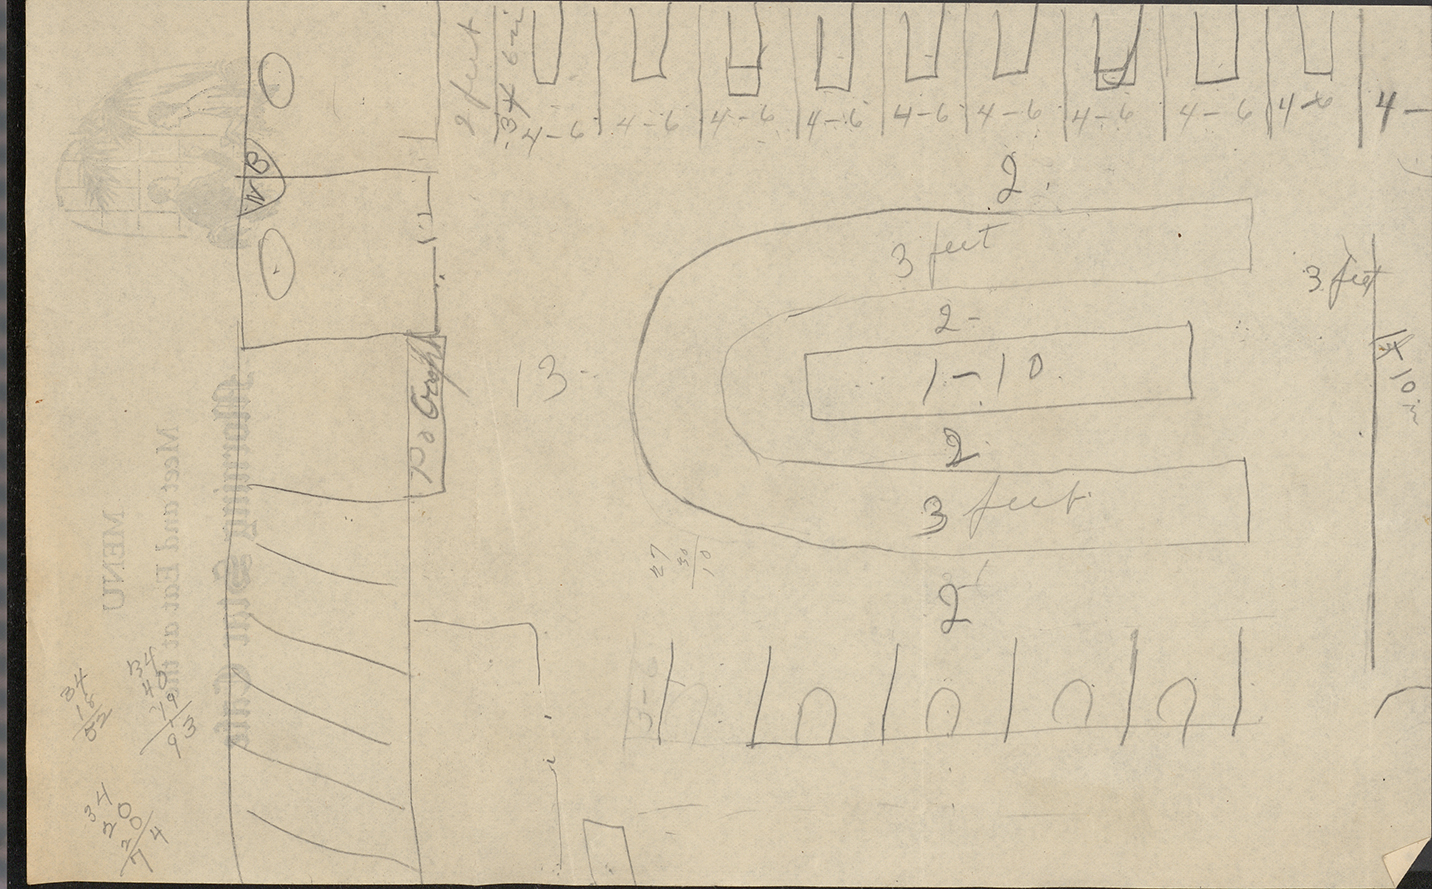 2 feet
34 6 in
4-6 4-6 4-6 4-6 4-6 4-6 4-6 4-6 4-6 4-
WB
2
3 feet
2-
1-10
2
3 feet
2
13-
3 feet
10 in
27
30
10
Morning Star Cafe
Meet and Eat at the
MENU
34
18
52
34
40
19
93
34
20
20
74